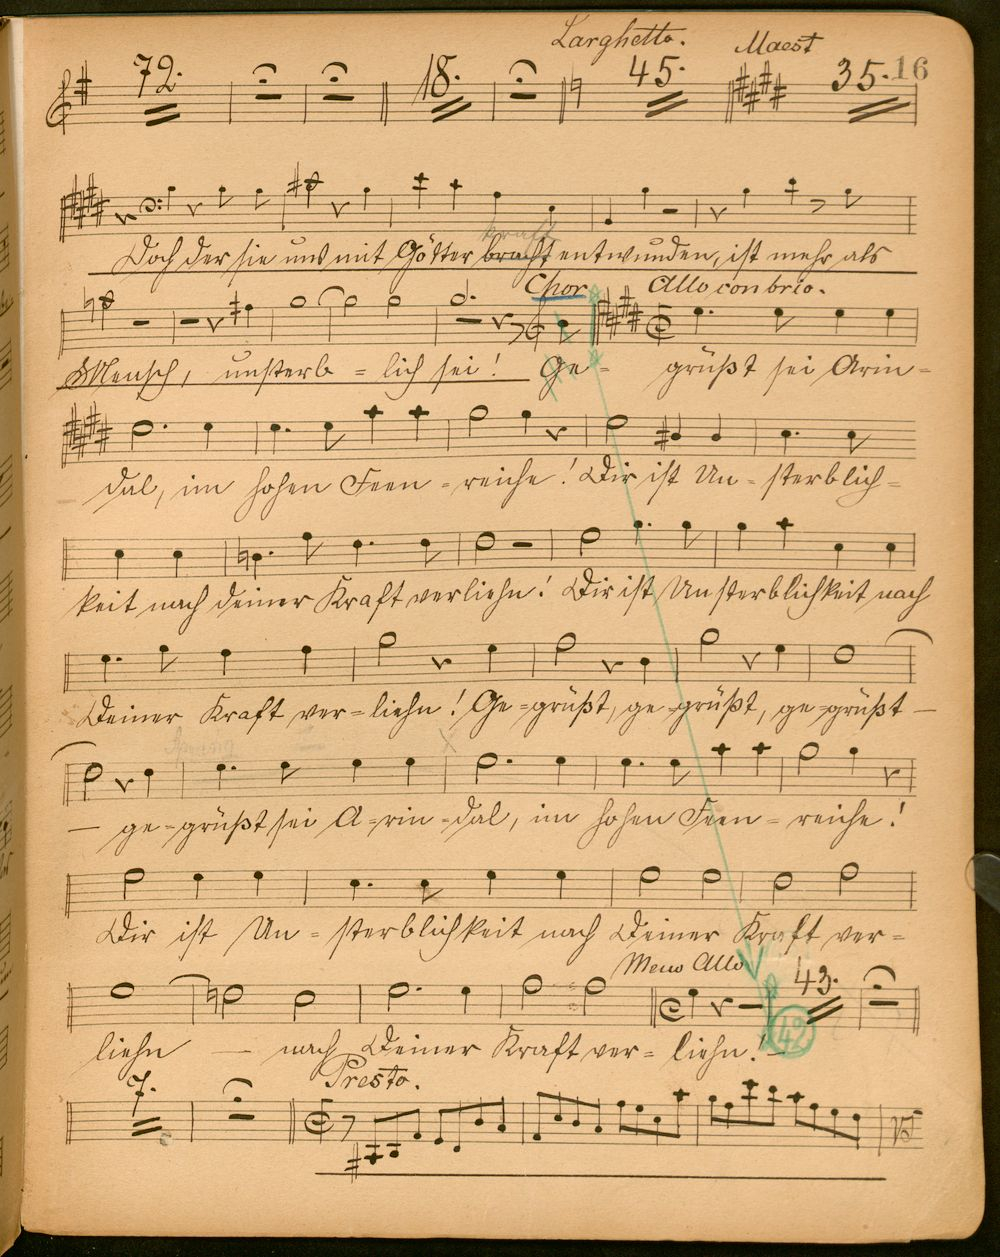 Larghetto. Maest
72. 18. 45. 35. 16
kraft
Doch der sie uns mit Götter bracht entwunden, ist mehr als
Chor Allo con brio.
Mensch, unsterb = lich sei! Ge = grüßt sei Arin =
dal, im hohen Feen = reiche! Dir ist Un = sterblich =
keit nach deiner Kraft verliehn! Dir ist Unsterblichkeit nach
Deiner Kraft ver = liehn! Ge = grüßt, ge = grüßt, ge = grüßt —
— ge = grüßt sei A = rin = dal, im hohen Feen = reiche!
Dir ist Un = sterblichkeit nach Deiner Kraft ver =
Meno Allo 43.
42
liehn — nach Deiner Kraft ver = liehn! —
7. Presto.